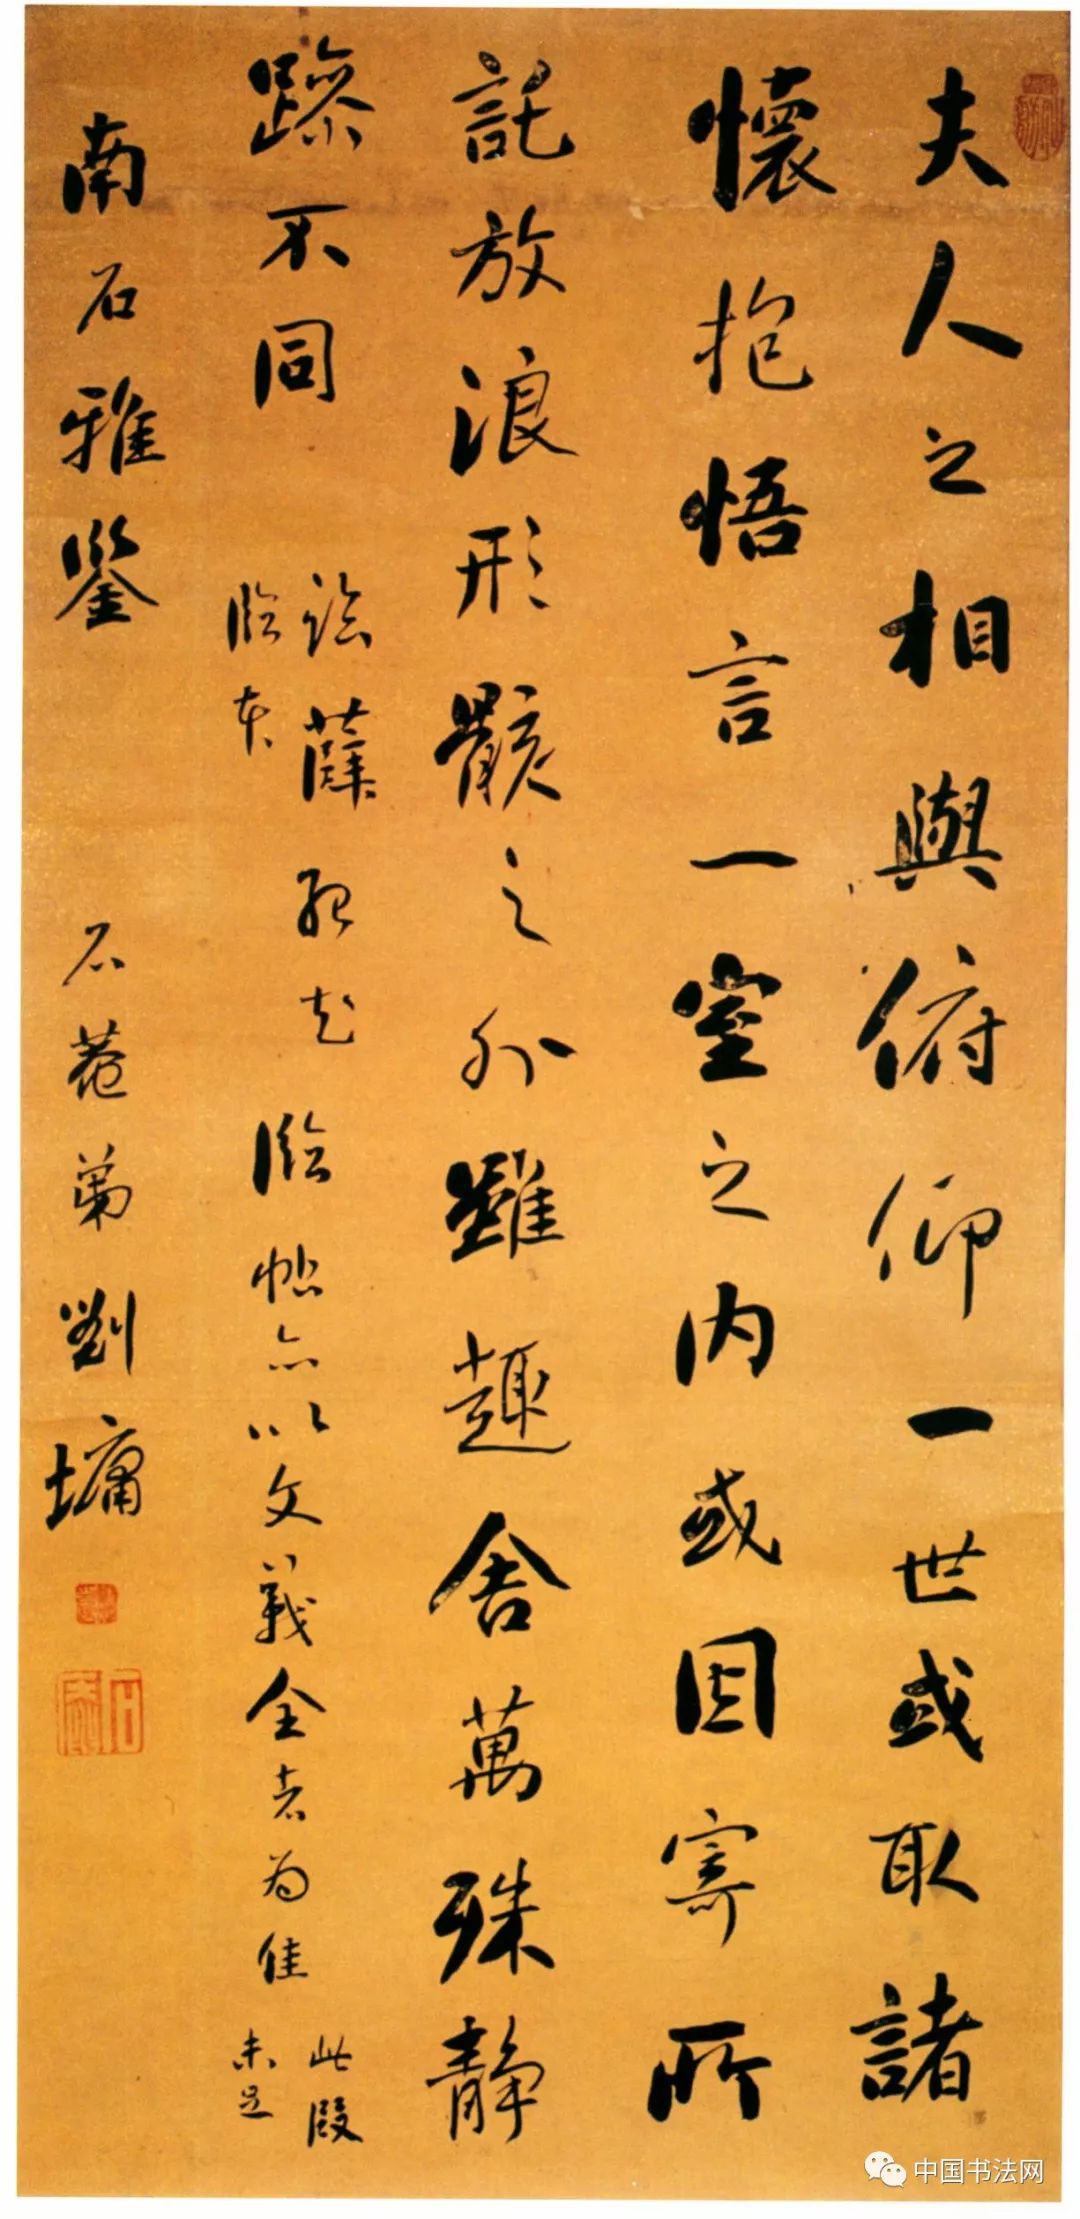 夫人之相與俯仰一世或取諸
懷抱悟言一室之內或因寄所
託放浪形骸之外雖趣舍萬殊靜
躁不同
薛
臨本
臨帖亦以文義全者為佳
此段
未足
南石雅鑒 石菴弟劉墉
中国书法网